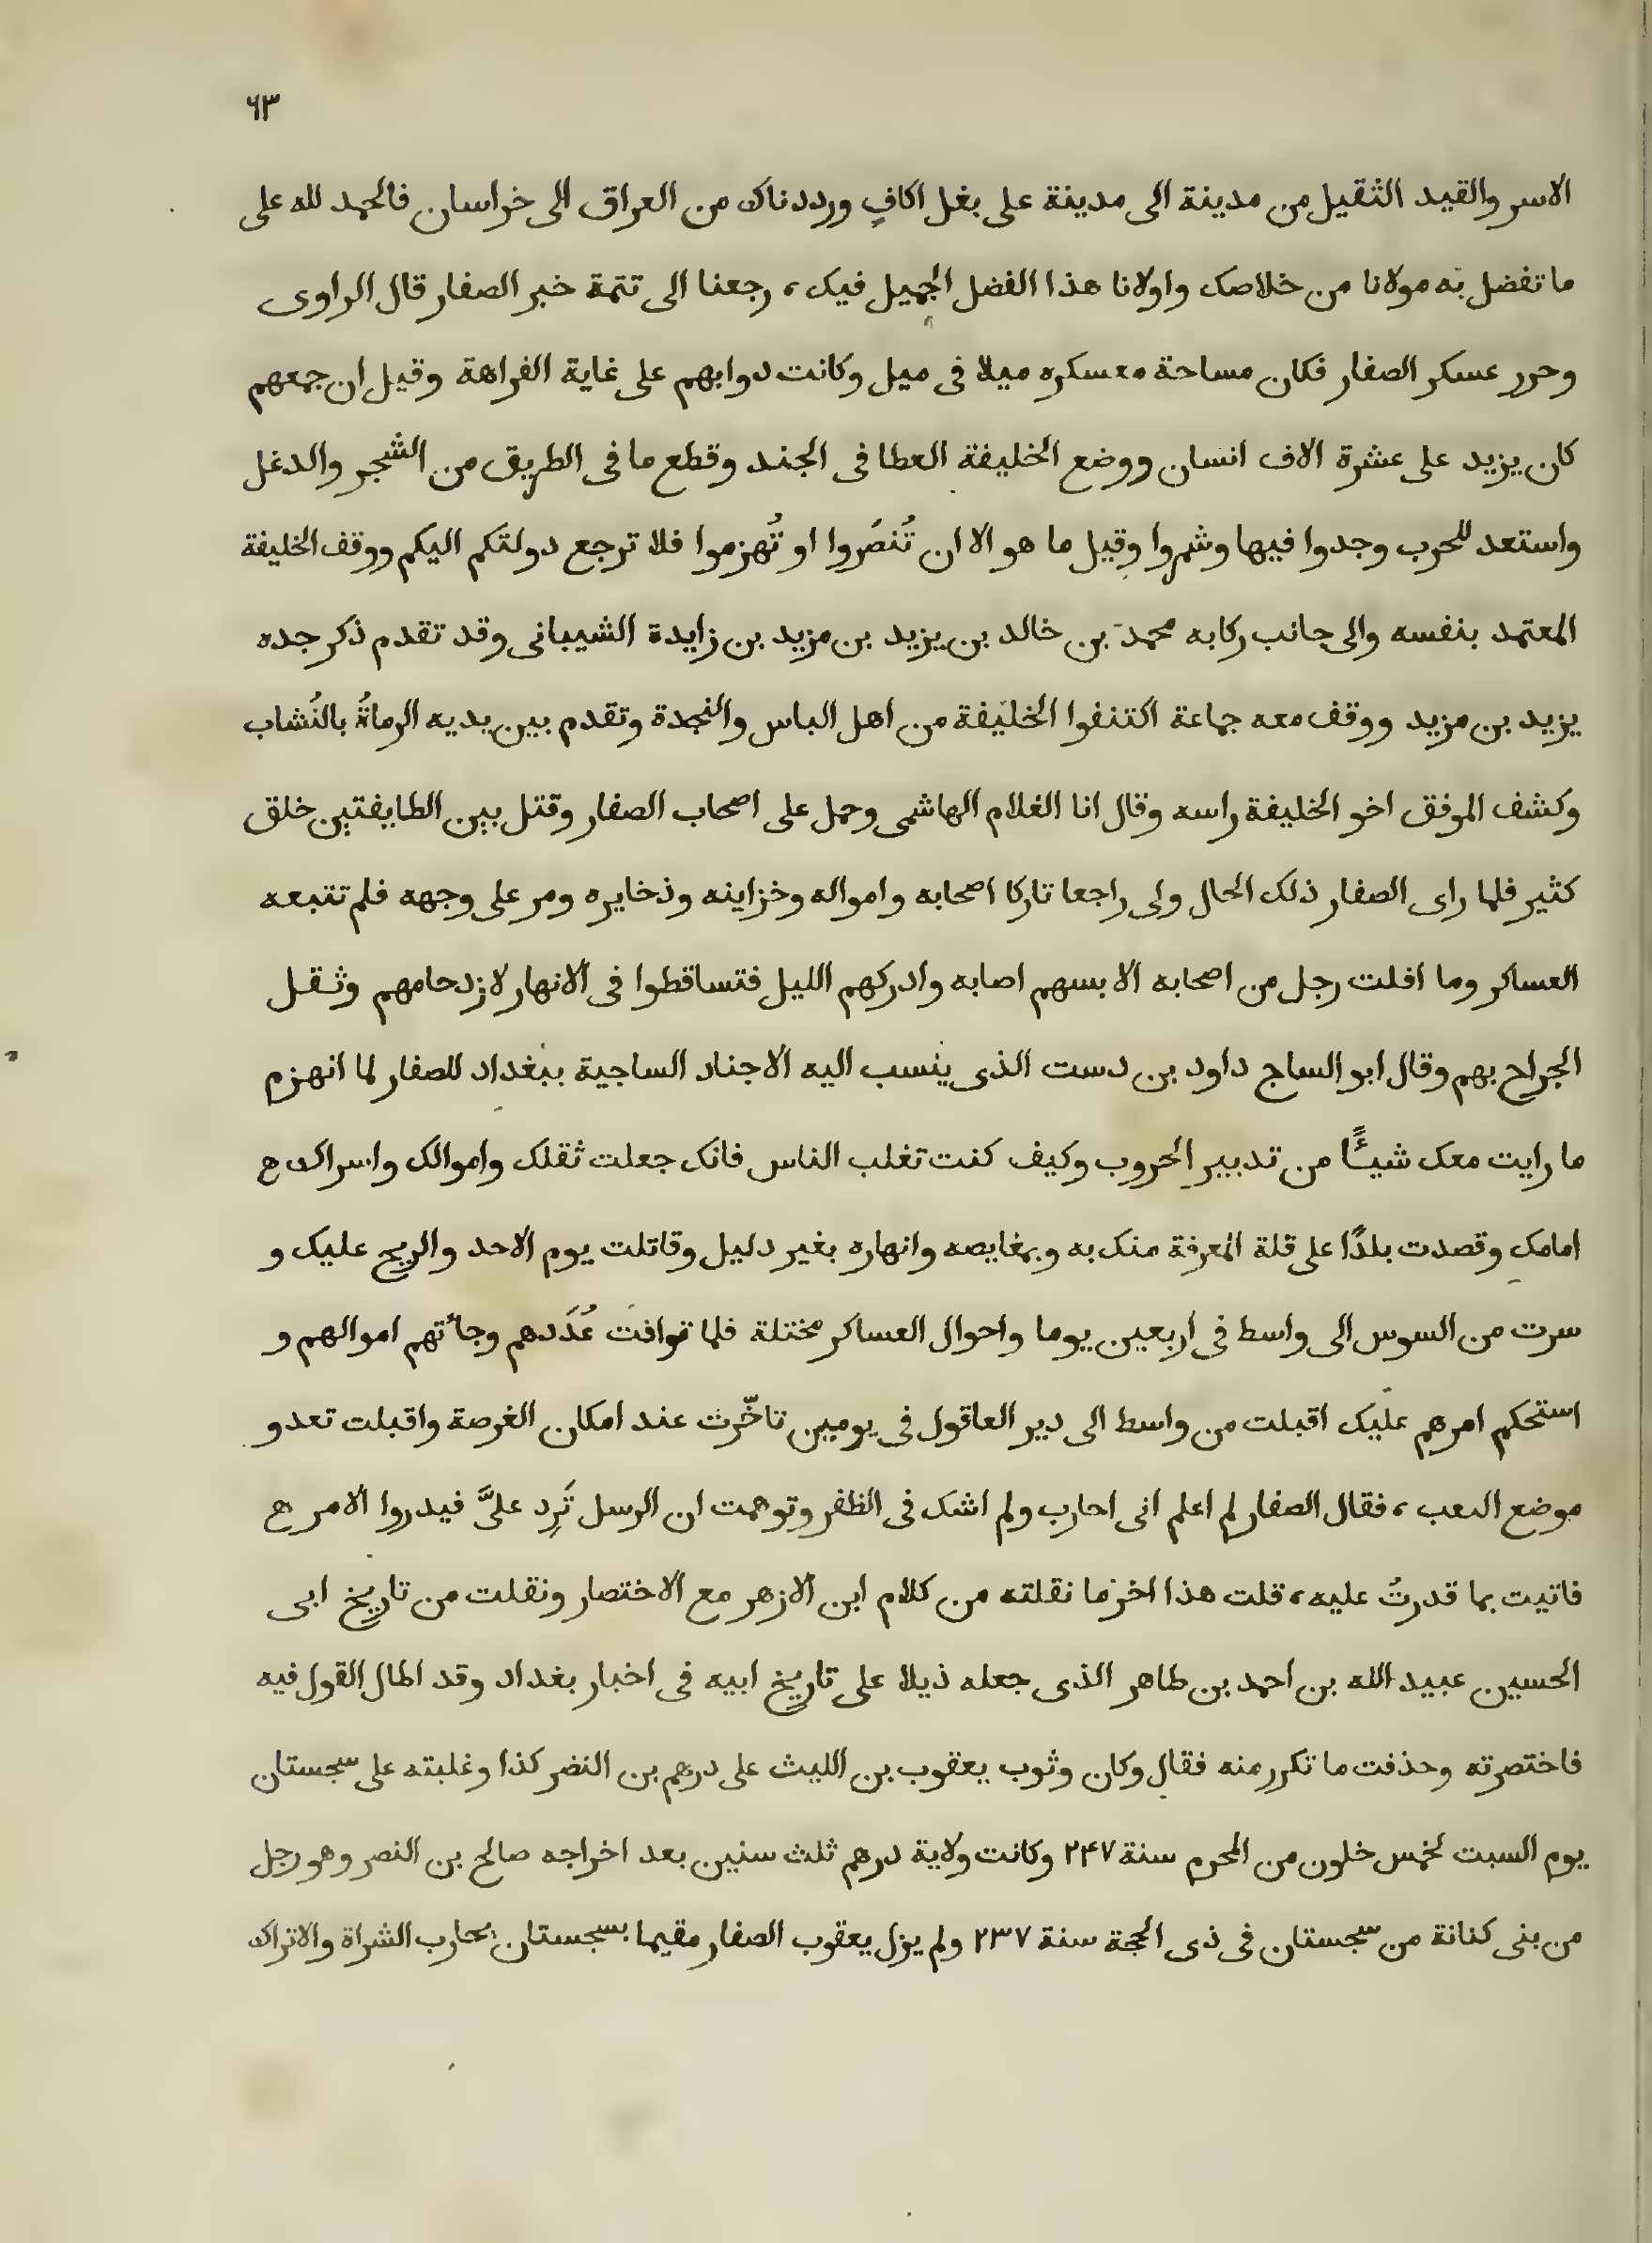 ٦٣
الاسر والقيد الثقيل من مدينة الى مدينة على بغل اكافٍ ورددناك من العراق الى خراسان فالحمد لله على
ما تفضل به مولانا من خلاصك واولانا هذا الفضل الجميل فيك ، رجعنا الى تتمة خبر الصفار قال الراوى
وحرر عسكر الصفار فكان مساحة معسكره ميلا فى ميل وكانت دوابهم على غاية الفراهة وقيل ان جمعهم
كان يزيد على عشرة الاف انسان ووضع الخليفة العطا فى الجند وقطع ما فى الطريق من الشجر والدغل
واستعد للحرب وجدوا فيها وشمروا وقيل ما هو الا ان تُنصَروا او تُهزموا فلا ترجع دولتكم اليكم ووقف الخليفة
المعتمد بنفسه والى جانب ركابه محمد بن خالد بن يزيد بن مزيد بن زايدة الشيبانى وقد تقدم ذكر جده
يزيد بن مزيد ووقف معه جماعة اكتنفوا الخليفة من اهل الباس والنجدة وتقدم بين يديه الرماةُ بالنُشاب
وكشف الموفق اخو الخليفة راسه وقال انا الغلام الهاشمى وحمل على اصحاب الصفار وقتل بين الطايفتين خلق
كثير فلما راى الصفار ذلك الحال ولى راجعا تاركا اصحابه وامواله وخزاينه وذخايره ومر على وجهه فلم تتبعه
العساكر وما افلت رجل من اصحابه الا بسهم اصابه وادركهم الليل فتساقطوا فى الانهار لازدحامهم وثقل
الجراح بهم وقال ابو الساج داود بن دست الذى ينسب اليه الاجناد الساجية ببغداد للصفار لما انهزم
ما رايت معك شيـئًا من تدبير الحروب وكيف كنت تغلب الناس فانك جعلت ثقلك واموالك واسراك
امامك وقصدت بلدًا على قلة المعرفة منك به وبمغايصه وانهاره بغير دليل وقاتلت يوم الاحد والريح عليك و
سرت من السوس الى واسط فى اربعين يوما واحوال العساكر مختلة فلما توافت عُدَدهم وجأتهم اموالهم و
استحكم امرهم عليك اقبلت من واسط الى دير العاقول فى يومين تاخّرت عند امكان الفرصة واقبلت تعدو
موضع ، فقال الصفار لم اعلم انى احارب ولم اشك فى الظفر وتوهمت ان الرسل تَرِد علىَّ فيدروا الامر
فاتيت بما قدرتُ عليه ، قلت هذا اخر ما نقلته من كلام ابن الازهر مع الاختصار ونقلت من تاريخ ابى
الحسين عبيد الله بن احمد بن طاهر الذى جعله ذيلا على تاريخ ابيه فى اخبار بغداد وقد اطال القول فيه
فاختصرته وحذفت ما تكرر منه فقال وكان وثوب يعقوب بن الليث على درهم بن النضر كذا وغلبته على سجستان
يوم السبت لخمس خلون من المحرم سنة ٢٤٧ وكانت ولاية درهم ثلث سنين بعد اخراجه صالح بن النصر وهو رجل
من بنى كنانة من سجستان فى ذى الحجة سنة ٢٣٧ ولم يزل يعقوب الصفار مقيما بسجستان يحارب الشراة والاتراك